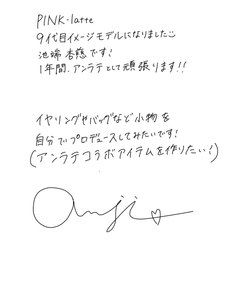 PINK-latte
9代目イメージモデルになりました
池端 杏慈です!
1年間、アンラテとして頑張ります!!
イヤリングやバッグなど小物を
自分でプロデュースしてみたいです!
(アンラテコラボアイテムを作りたい!)
Anji♡